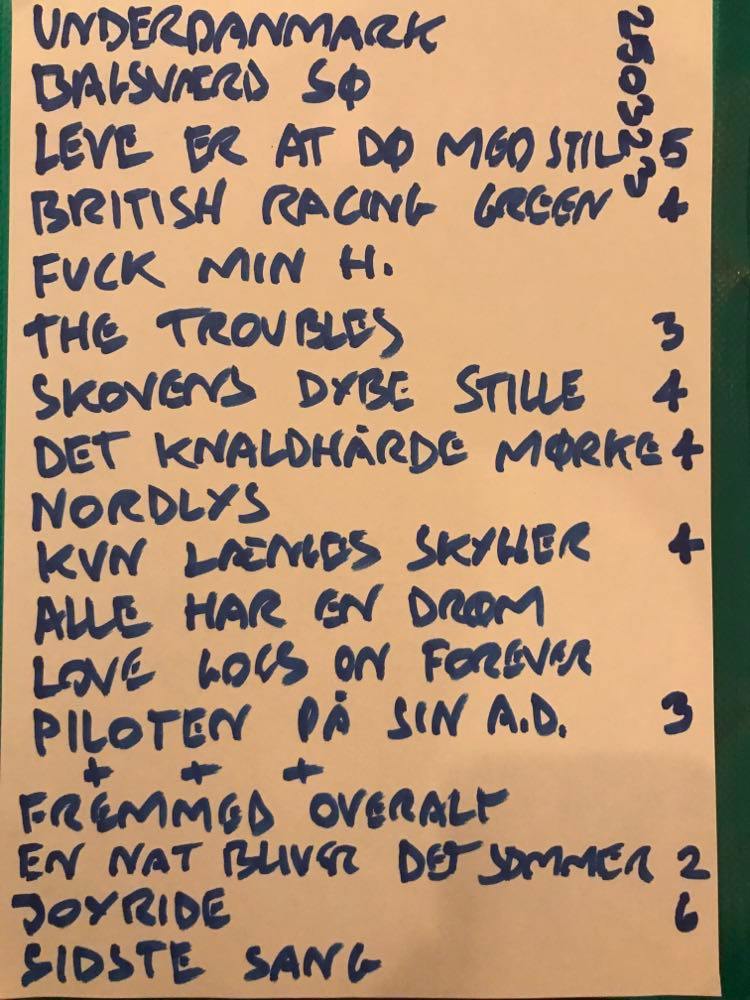 UNDERDANMARK
250323
BAGSVÆRD SØ
LEVE ER AT DØ MED STIL 5
BRITISH RACING GREEN 4
FUCK MIN H.
THE TROUBLES 3
SKOVENS DYBE STILLE 4
DET KNALDHÅRDE MØRKE 4
NORDLYS
KUN LÆNGES SKYGGER 4
ALLE HAR EN DRØM
LOVE GOES ON FOREVER
PILOTEN PÅ SIN A.D. 3
+ + +
FREMMED OVERALT
EN NAT BLIVER DET SOMMER 2
JOYRIDE 6
SIDSTE SANG